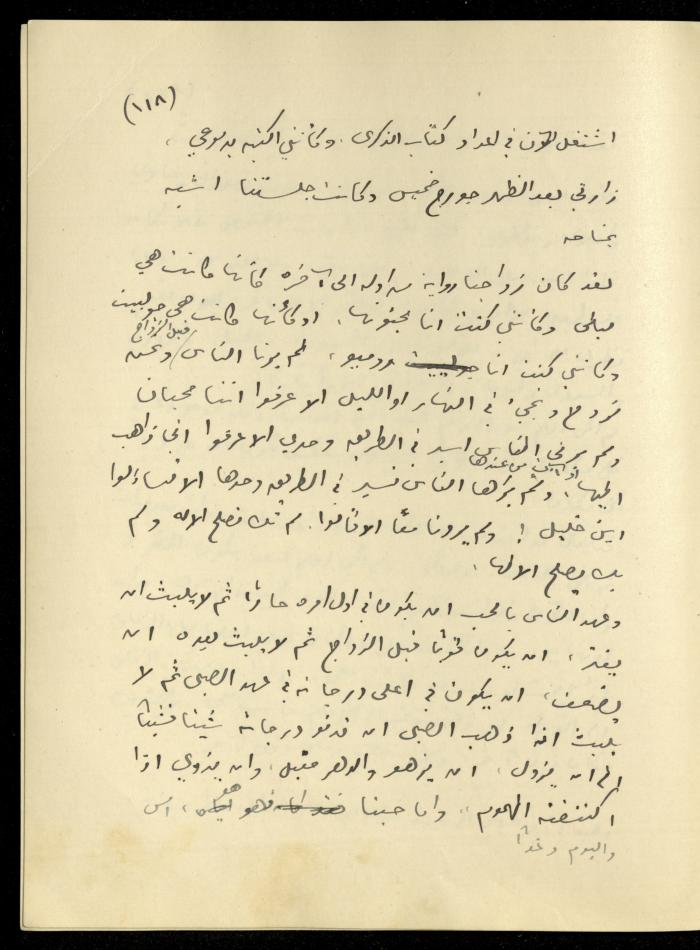 (١١٨)
اشتغل الآن في اعداد كتاب الذكرى. وكأنني اكتبه بدموعي،
زارني بعد الظهر جورج خميس وكانت جلستنا اشبه
بمناحه
لقد كان زواجنا رواية من اوله الى آخره كأنها كانت هي
ليلى وكأنني كنت انا مجنونها. او كأنها كانت هي جولييت
وكأنني كنت انا روميو، لم يرنا الناس قبل الزواج ونحن
نروح ونجيء في النهار او الليل الا عرفوا اننا محبان
ولم يرني الناس اسير في الطريق وحدي الا عرفوا اني ذاهب
اليها او آت من عندها. ولم يرها الناس تسير في الطريق وحدها الا تساءلوا
اين خليل! ولم يرونا معًا الا قالوا. لم تك تصلح الا له ولم
يك يصلح الا لها.
وعهد الناس بالحب ان يكون في اول امره حارًا ثم لا يلبث ان
يفتر، ان يكون قويًا قبل الزواج ثم لا يلبث بعده ان
يضعف، ان يكون في اعلى درجاته في عهد الصبى ثم لا
يلبث اذا ذهب الصبى ان تدنو درجاته شيئا فشيئًا
الى ان يزول، ان يزهو والدهر مقبل، وان يذوي اذا
اكتنفته الهموم، واما حبنا فهو هو، امس
واليوم وغدًا